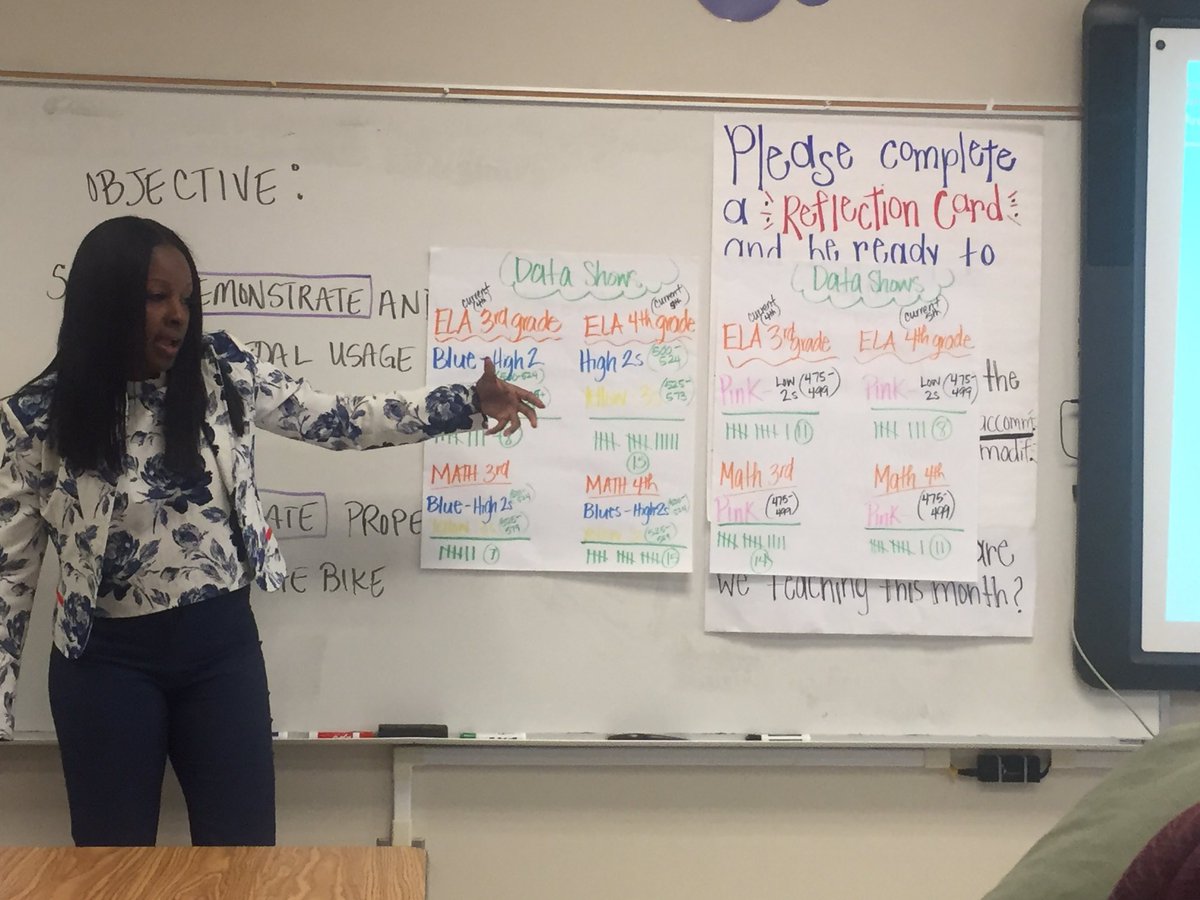 OBJECTIVE:
EMONSTRATE AN
DAL USAGE
ATE PROPE
BIKE
Data Shows
current 4th
ELA 3rd grade
Blue - High 2
8
MATH 3rd
Blue-High 2s
525-
7
current 5th
ELA 4th grade
High 2s 500-524
Yellow 3s 525-573
15
MATH 4th
Blues-High 2s
525-
Please complete
a Reflection Card
and be ready to
the
accomm.
modif.
are
we teaching this month?
Data Shows
current 4th
ELA 3rd grade
Pink- Low 2s (475-499)
11
Math 3rd
Pink (475-499)
14
current 5th
ELA 4th grade
Pink- Low 2s (475-499)
8
Math 4th
Pink- (475-499)
11